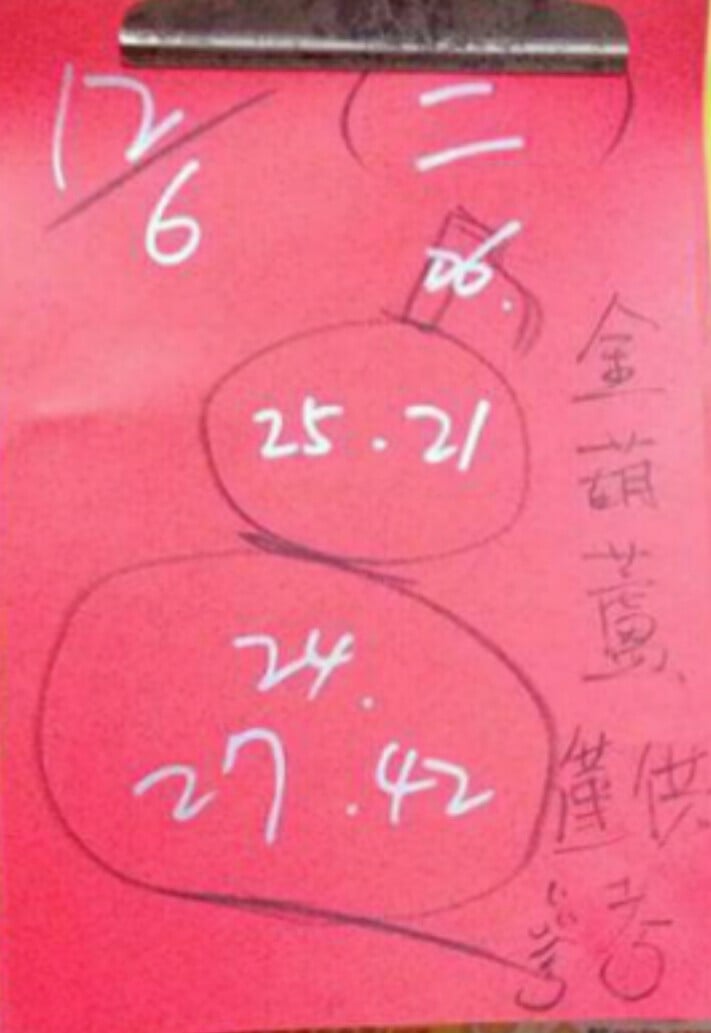 12/6 (二)
26.
25.21
24.
27.42
金葫蘆
僅供
參考